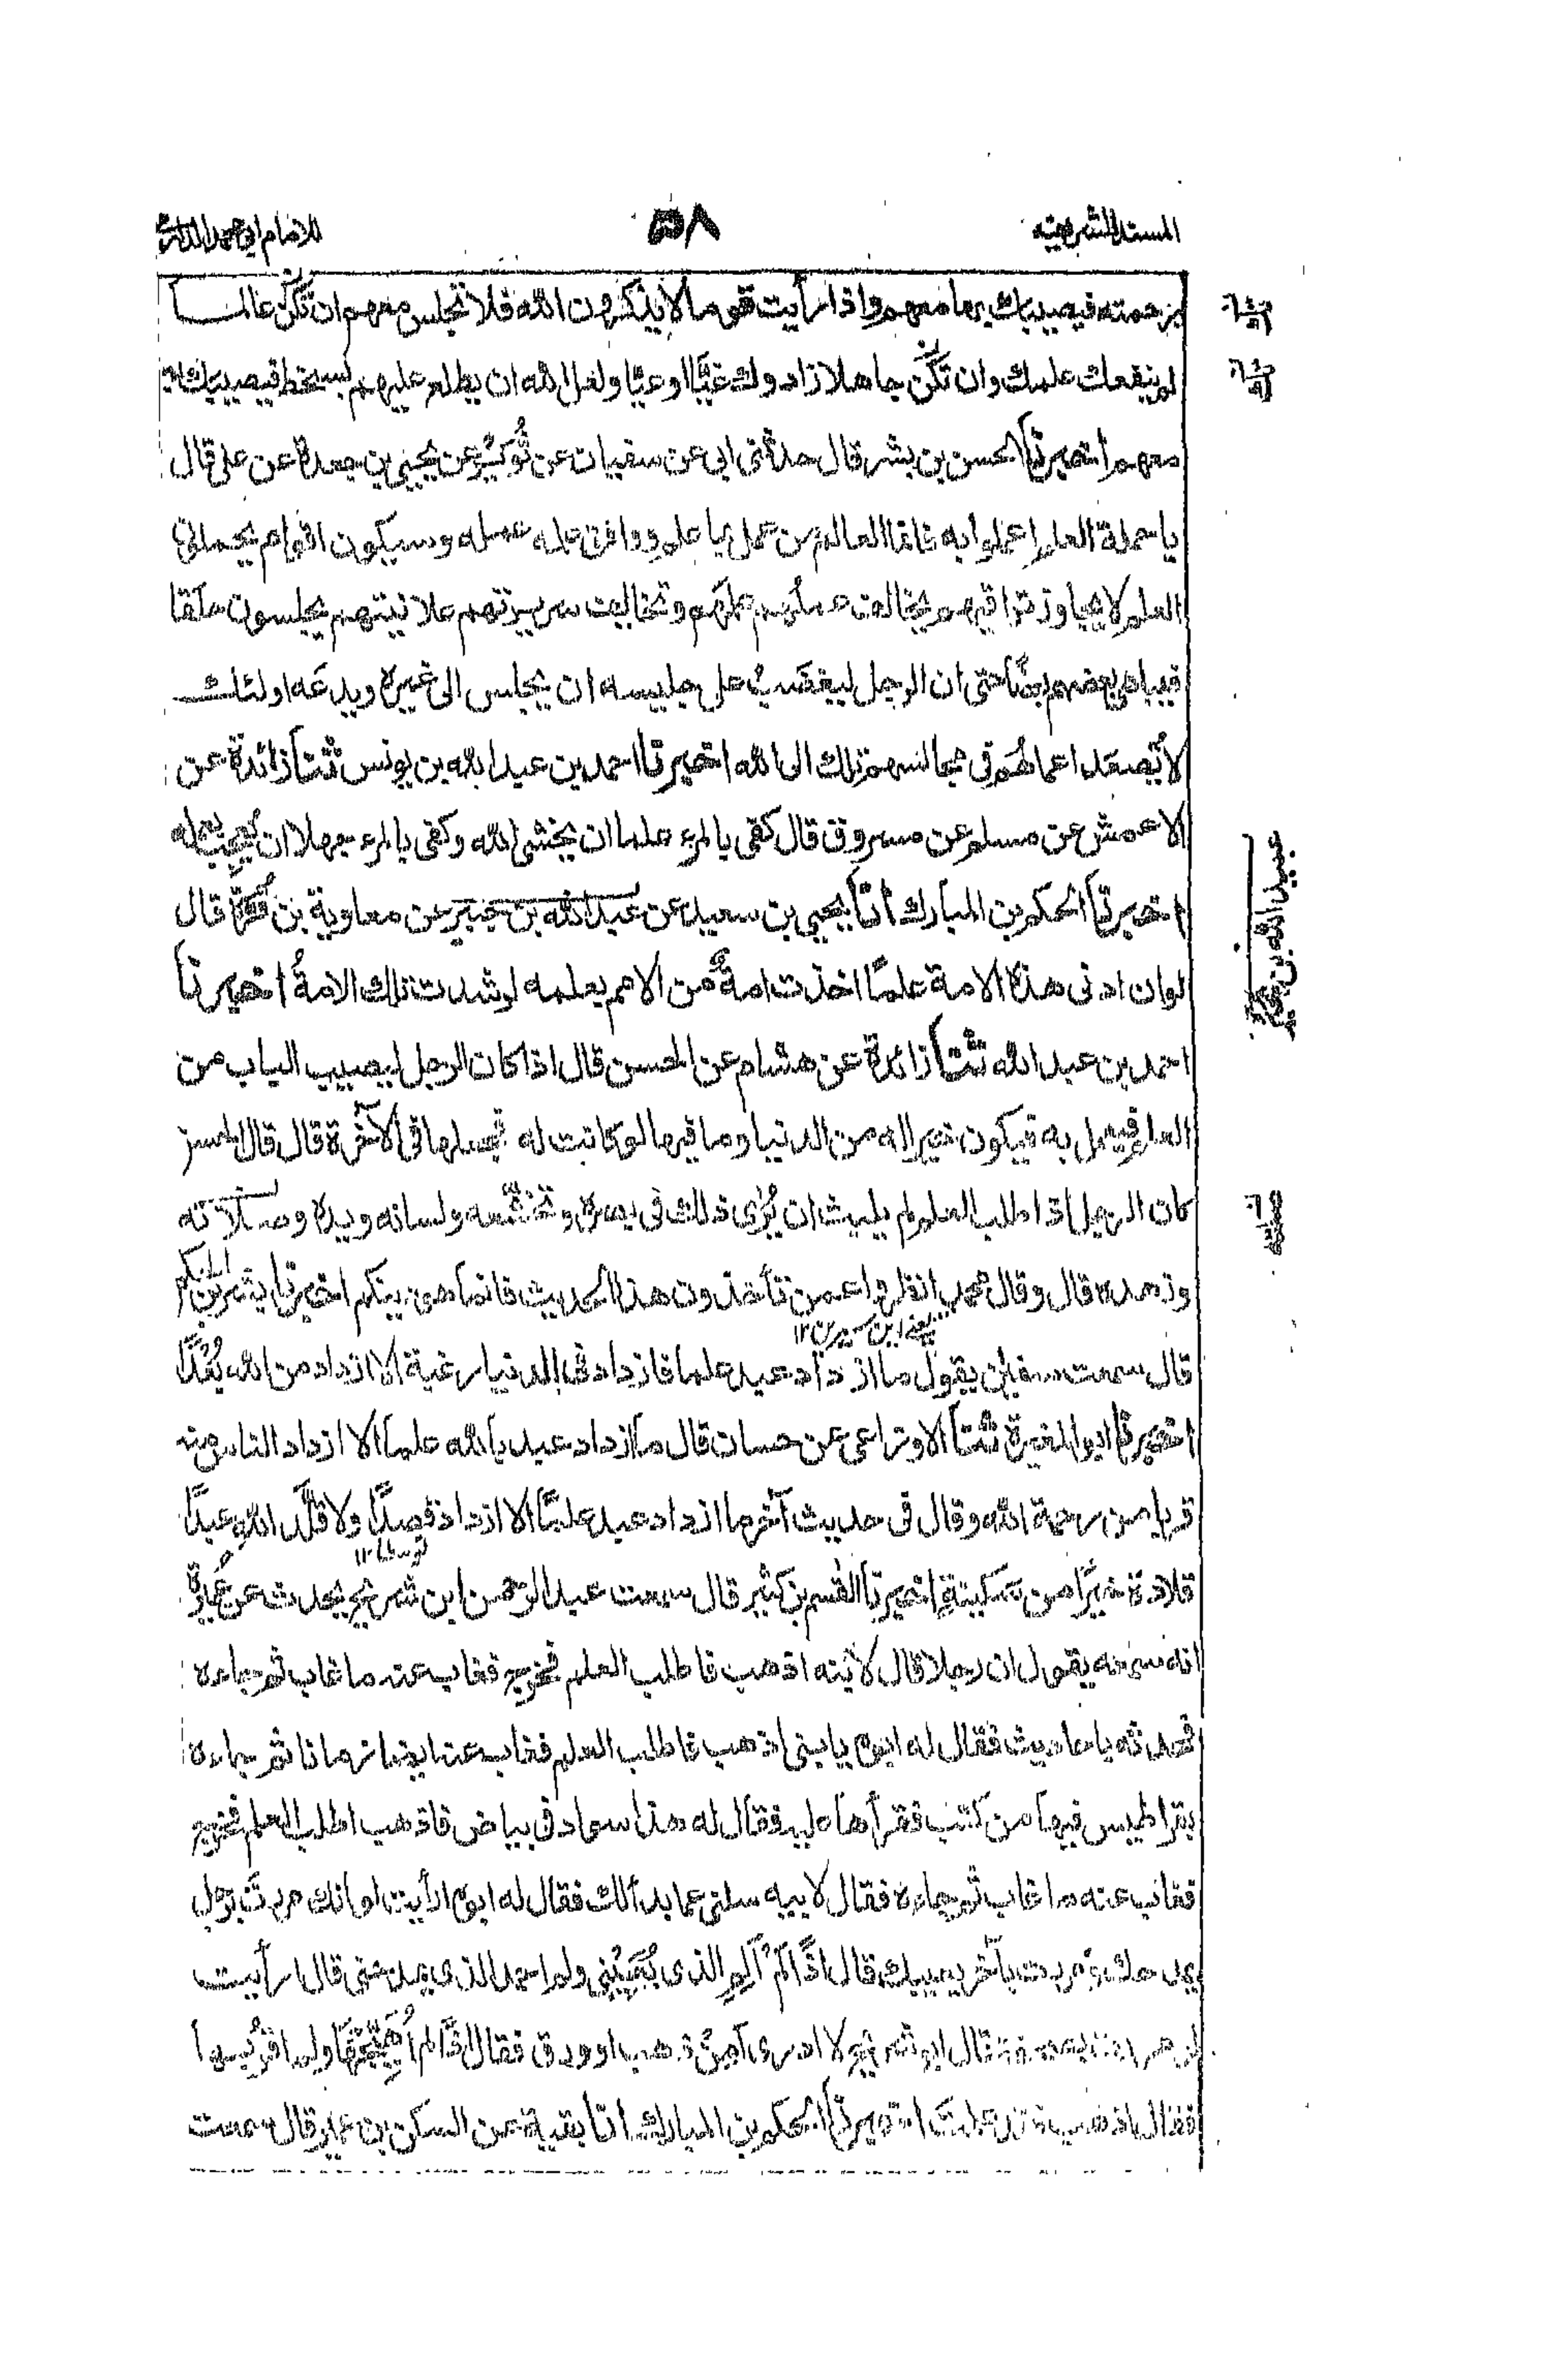 المسند الشريف
٥٨
للامام ابي محمد الدارمي
برحمته فيصيبك بها معهم واذا رأيت قوما لا يذكرون الله فلا تجلس معهم ان تكن عالما
لم ينفعك علمك وان تكن جاهلا زادوك غيًّا او عيًّا ولعل الله ان يطلع عليهم بسخط فيصيبك به
معهم اخبرنا الحسن بن بشر قال حدثنى ابى عن سفيان عن ثُوَيْر عن يحيى بن جعدة عن على قال
يا حملة العلم اعملوا به فانما العالم من عمل بما علم ووافق علمه عمله وسيكون اقوام يحملون
العلم لا يجاوز تراقيهم يخالف عملُهم علمَهم وتخالف سريرتهم علانيتهم يجلسون حلقا
فيباهى بعضهم بعضًا حتى ان الرجل ليغضبُ على جليسه ان يجلس الى غيره ويدعَه اولئك
لا تصعد اعمالهُم فى مجالسهم تلك الى الله اخبرنا احمد بن عبد الله بن يونس ثنا زائدة عن
الاعمش عن مسلم عن مسروق قال كفى بالمرء علما ان يخشى الله وكفى بالمرء جهلا ان يُعجِبَ بعمله
اخبرنا الحكم بن المبارك انا يحيى بن سعيد عن عبد الله بن عن معاوية بن قُرَّةَ قال
لو ان ادنى هذه الامة علمًا اخذت امةٌ من الامم بعلمه لرشدت تلك الامةُ اخبرنا
احمد بن عبد الله ثنا زائدة عن هشام عن الحسن قال اذا كان الرجل ليصيب الباب من
العلم فيعمل به فيكون خيرا له من الدنيا وما فيها لو كانت له فجعلها فى الآخرة قال قال الحسن
كان الرجل اذا طلب العلم لم يلبث ان يُرٰى ذلك فى بصره وتخشّعه ولسانه ويده وصلاته
وزهده قال وقال محمد انظروا عمن تأخذون هذا الحديث فانما هو دينكم اخبرنا بشر بن الحكم
يعنى ابن سيرين ١٢
قال سمعت سفيٰن يقول ما ازداد عبد علما فازداد فى الدنيا رغبة الا ازداد من الله بُعْدًا
اخبرنا ابو المغيرة ثنا الاوزاعى عن حسان قال ما ازداد عبد بالله علما الا ازداد الناس منه
قربا من رحمة الله وقال فى حديث آخر ما ازداد عبد علمًا الا ازداد قصدًا ولا قلَّد الله عبدًا
توسطا ١٢
قلادة خيرًا من سكينةٍ اخبرنا القٰسم بن كثير قال سمعت عبد الرحمن ابن شريح يحدث عن عُمَيرة
انه سمعه يقول ان رجلا قال لابنه اذهب فاطلب العلم فخرج فغاب عنه ما غاب ثم جاءه
فحدثه باحاديث فقال له ابوه يا بنى اذهب فاطلب العلم فغاب عنه ايضا زمانا ثم جاءه
بقراطيس فيها من كتب فقرأها عليه فقال له هذا سواد فى بياض فاذهب اطلب العلم فخرج
فغاب عنه ما غاب ثم جاءه فقال لابيه سلنى عما بدا لك فقال له ابوه ارأيت لو انك مررتَ برجل
يمدحك ومررت بآخر يعيبك قال اذًا لم اَلُمِ الذى يُعيبُنى ولم احمد الذى يمدحنى قال ارأيت
لو مررت بصفيحة قال ابو شريح لا ادرى أمِنْ ذهب او ورق فقال اذًا لم اُهَيِّجْهَا ولم اقربها
فقال اذهب فقد علمت اخبرنا الحكم بن المبارك انا بقية عن السكن بن عمير قال سمعت
عبيد الله بن